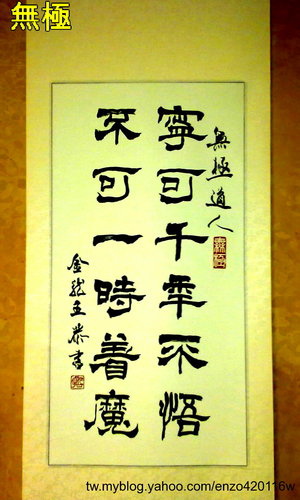 無極
無極道人
寧可千年不悟
不可一時着魔
金龍王恭書
tw.myblog.yahoo.com/enzo420116w